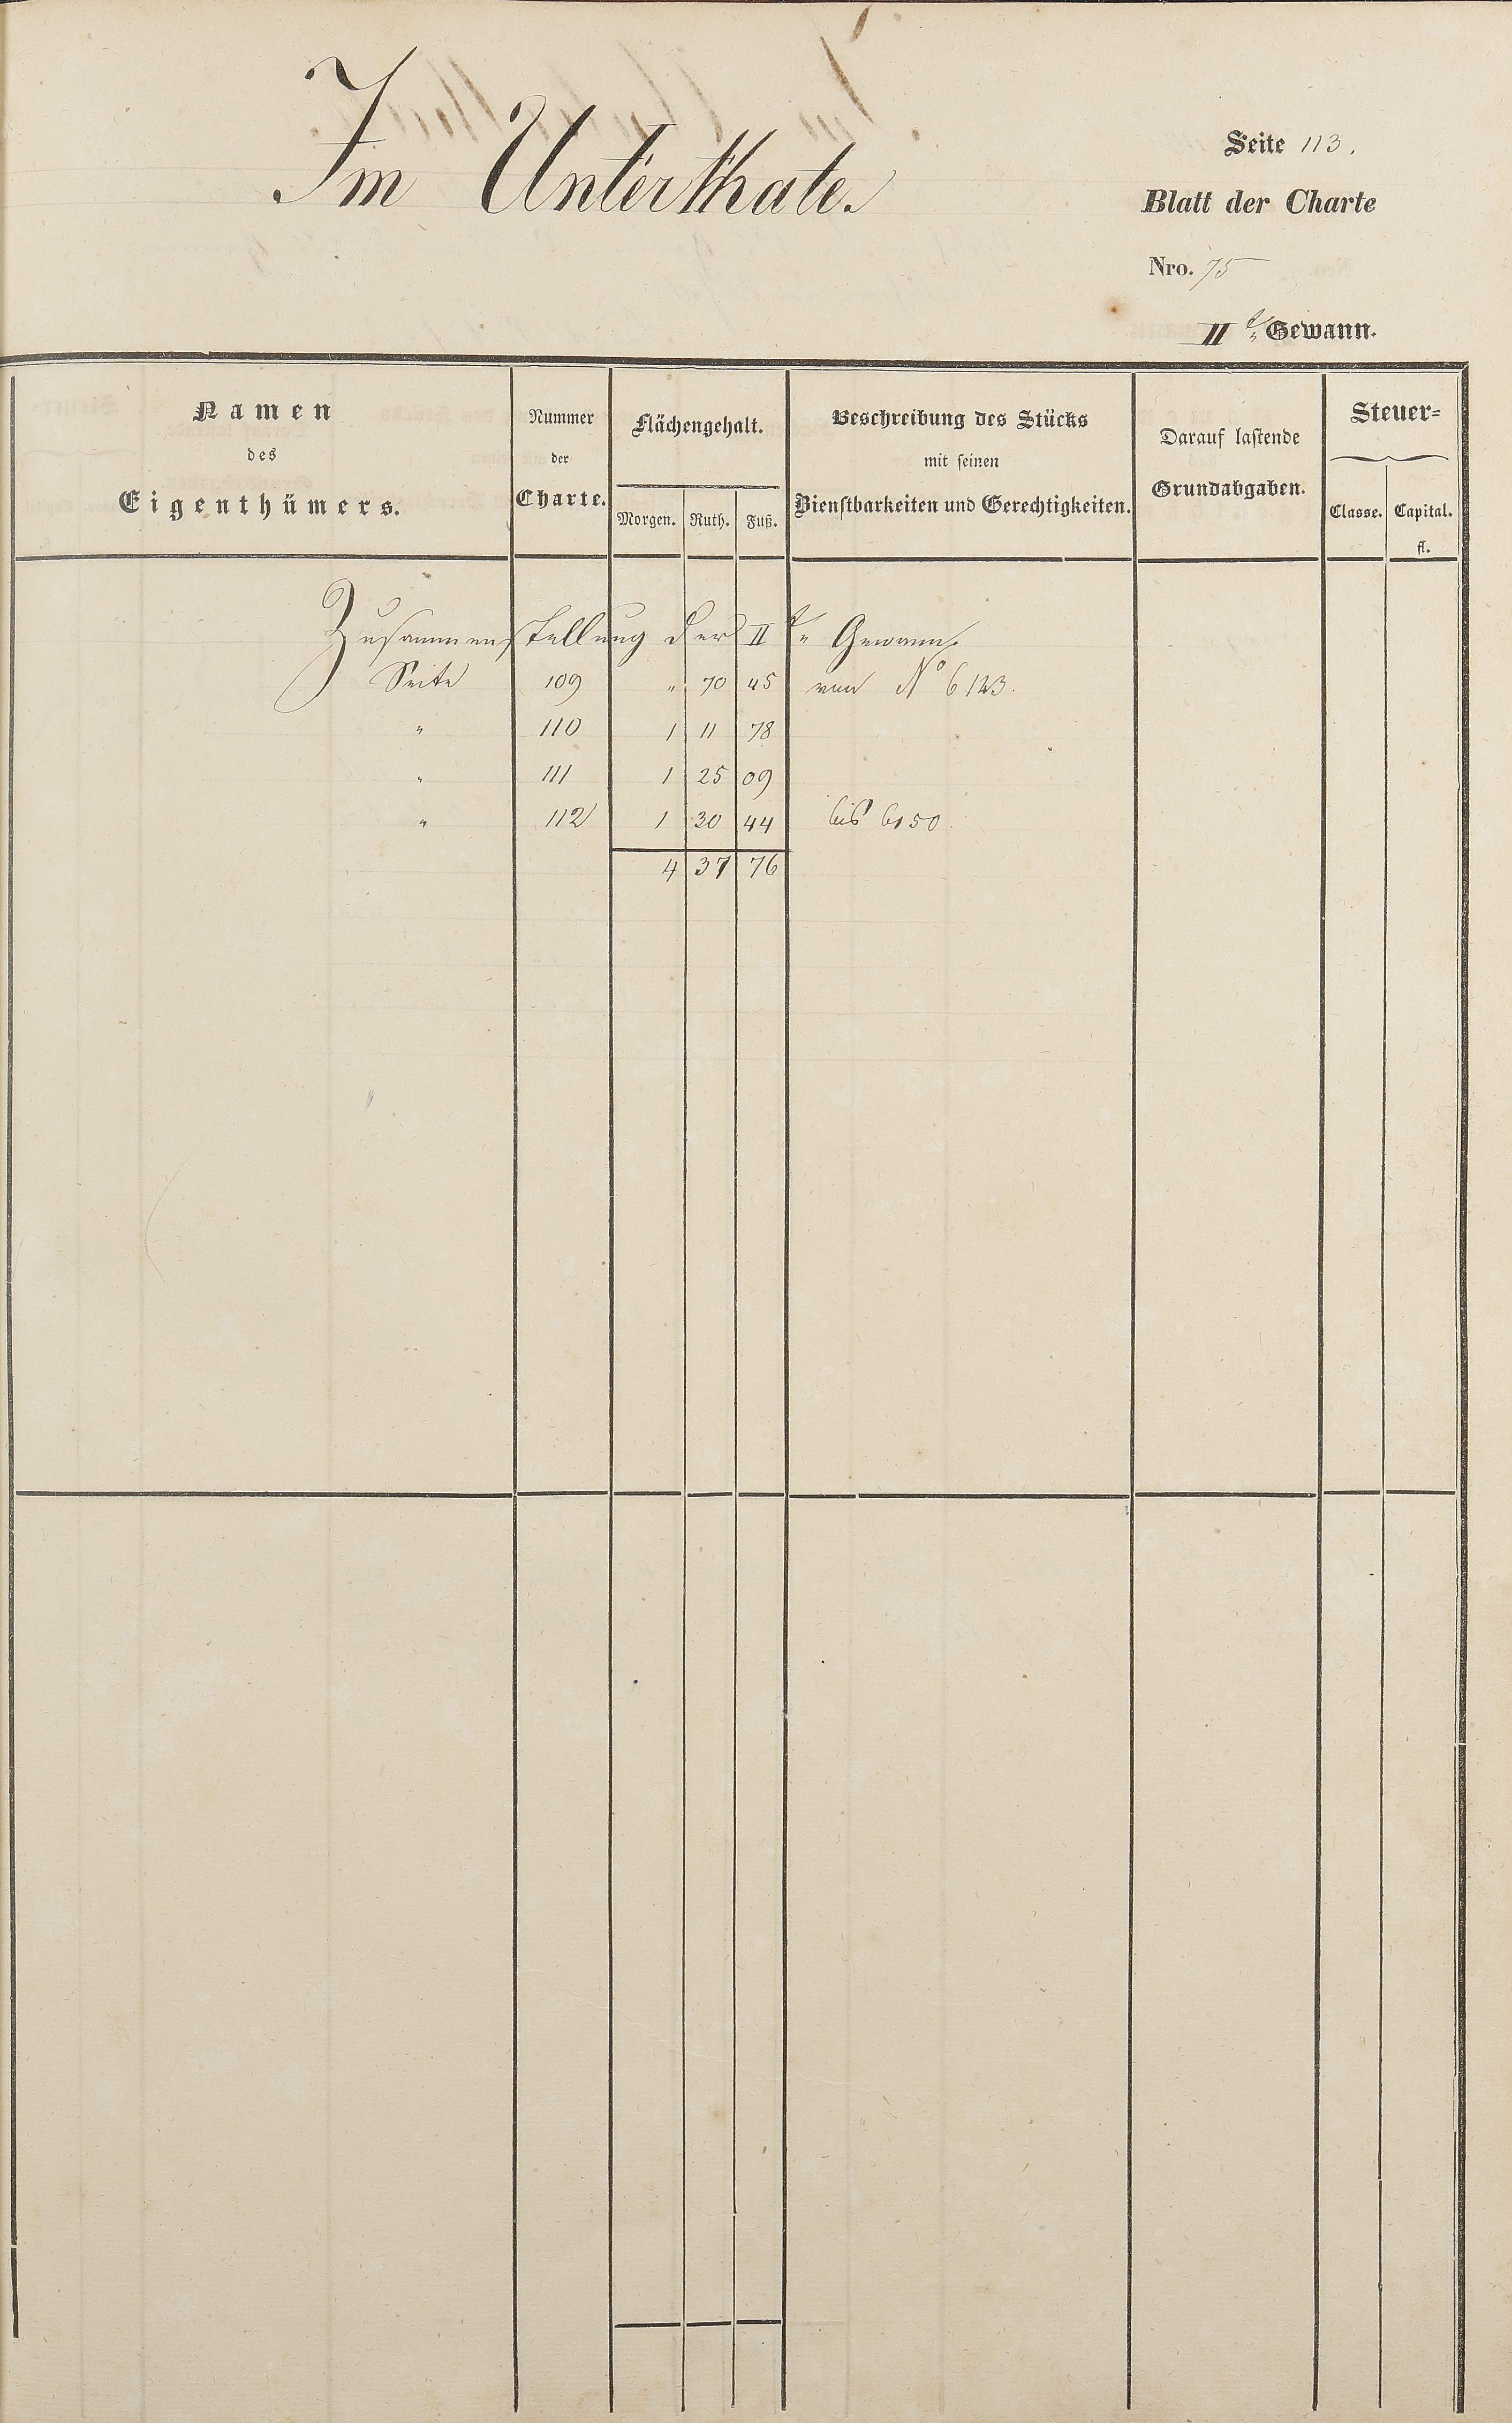 Im Unterthale.
Seite 113.
Blatt der Charte
Nro. 75
II te Gewann.
Namen des Eigenthümers.
Nummer der Charte.
Flächengehalt.
Morgen. Ruth. Fuß.
Beschreibung des Stücks
mit seinen
Dienstbarkeiten und Gerechtigkeiten.
Darauf lastende
Grundabgaben.
Steuer=
Classe. Capital.
fl.
Zusammenstellung der II te Gewann.
Seite 109 " 70 45 von No 6123.
" 110 1 11 78
" 111 1 25 09
" 112 1 30 44 bis 6150.
4 37 76